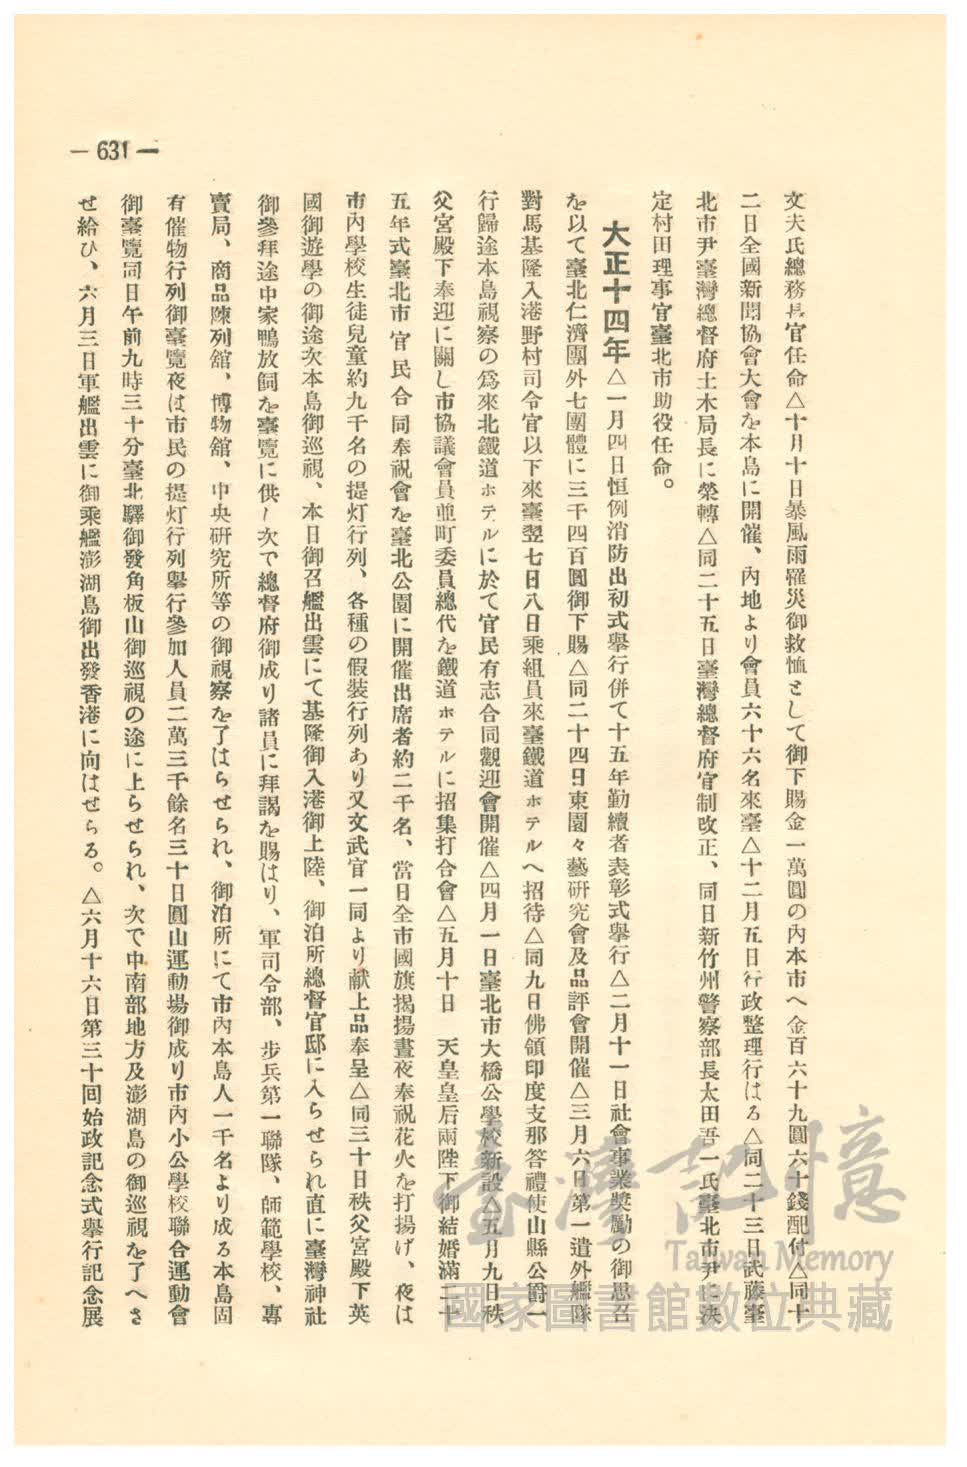 — 631 —
文夫氏總務長官任命△十月十日暴風雨罹災御救恤として御下賜金一萬圓の內本市へ金百六十九圓六十錢配付△同十
二日全國新聞協會大會を本島に開催、內地より會員六十六名來臺△十二月五日行政整理行はる△同二十三日武藤臺
北市尹臺灣總督府土木局長に榮轉△同二十五日臺灣總督府官制改正、同日新竹州警察部長太田吾一氏臺北市尹に決
定村田理事官臺北市助役任命。
大正十四年△一月四日恒例消防出初式擧行併て十五年勤續者表彰式擧行△二月十一日社會事業奬勵の御思召
を以て臺北仁濟團外七團體に三千四百圓御下賜△同二十四日東園々藝硏究會及品評會開催△三月六日第一遣外艦隊
對馬基隆入港野村司令官以下來臺翌七日八日乘組員來臺鐵道ホテルへ招待△同九日佛領印度支那答禮使山縣公爵一
行歸途本島視察の爲來北鐵道ホテルに於て官民有志合同觀迎會開催△四月一日臺北市大橋公學校新設△五月九日秩
父宮殿下奉迎に關し市協議會員竝町委員總代を鐵道ホテルに招集打合會△五月十日　天皇皇后兩陛下御結婚滿二十
五年式臺北市官民合同奉祝會を臺北公園に開催出席者約二千名、當日全市國旗揭揚晝夜奉祝花火を打揚げ、夜は
市內學校生徒兒童約九千名の提灯行列、各種の假裝行列あり又文武官一同より献上品奉呈△同三十日秩父宮殿下英
國御遊學の御途次本島御巡視、本日御召艦出雲にて基隆御入港御上陸、御泊所總督官邸に入らせられ直に臺灣神社
御參拜途中家鴨放飼を臺覽に供し次で總督府御成り諸員に拜謁を賜はり、軍司令部、步兵第一聯隊、師範學校、專
賣局、商品陳列舘、博物舘、中央硏究所等の御視察を了はらせられ、御泊所にて市內本島人一千名より成る本島固
有催物行列御臺覽夜は市民の提灯行列擧行參加人員二萬三千餘名三十日圓山運動場御成り市內小公學校聯合運動會
御臺覽同日午前九時三十分臺北驛御發角板山御巡視の途に上らせられ、次で中南部地方及澎湖島の御巡視を了へさ
せ給ひ、六月三日軍艦出雲に御乘艦澎湖島御出發香港に向はせらる。△六月十六日第三十回始政記念式擧行記念展
臺灣記憶
Taiwan Memory
國家圖書館數位典藏